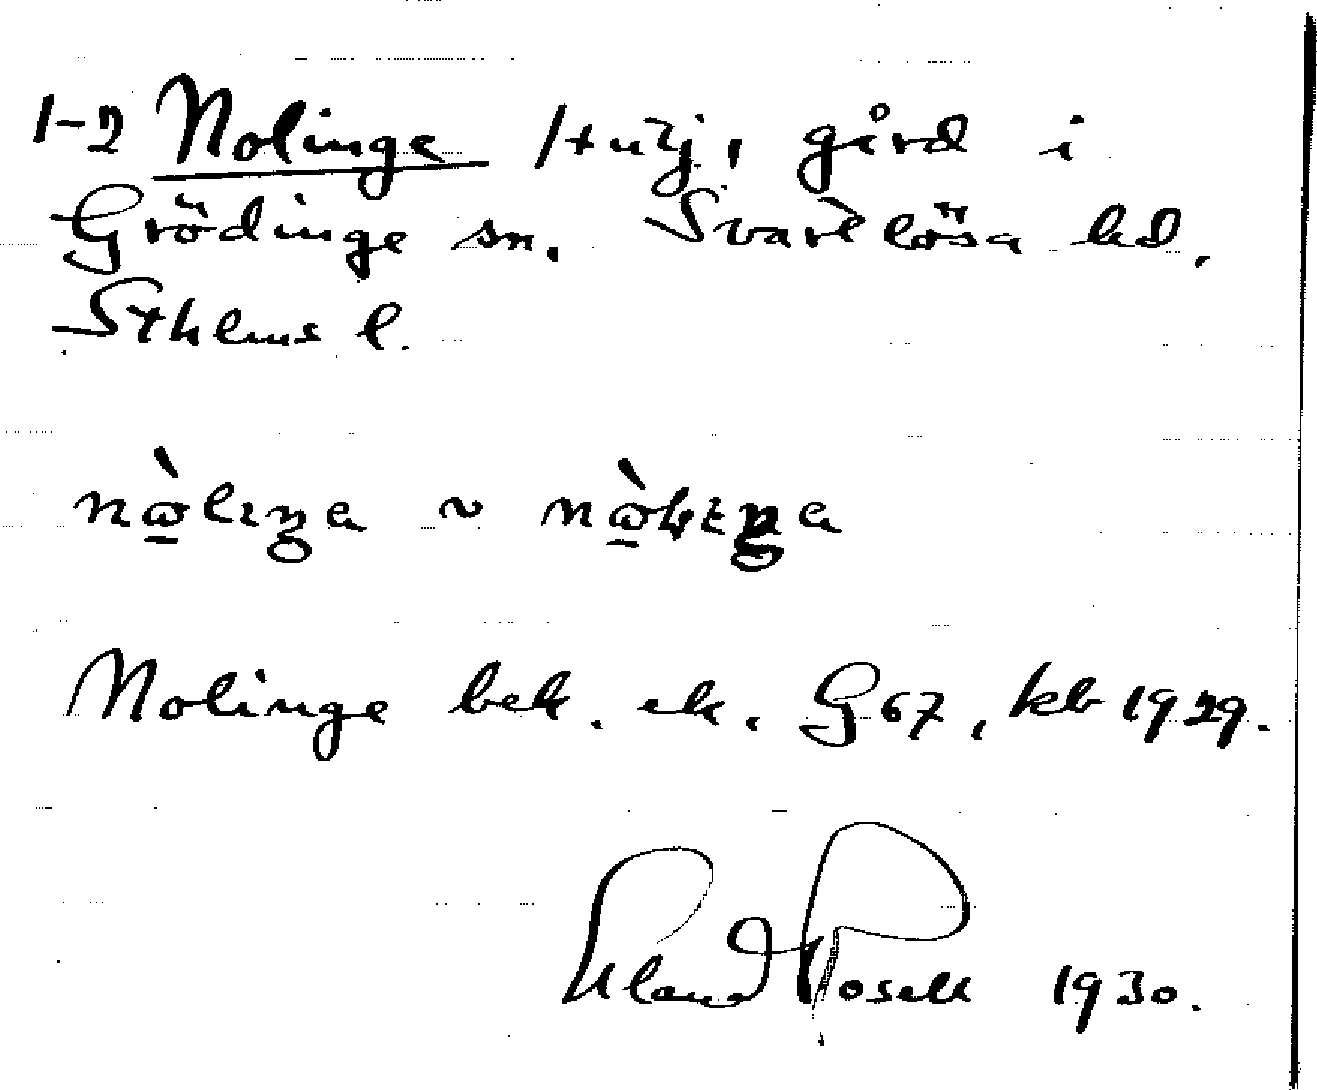 1-2 Nolinge /+utj, gård i
Grödinge sn. Svartlösa hd,
Sthlms l.
nòlıŋa ~
Nolinge bek. ek. G67, kb 1929.
Erland Rosell 1930.